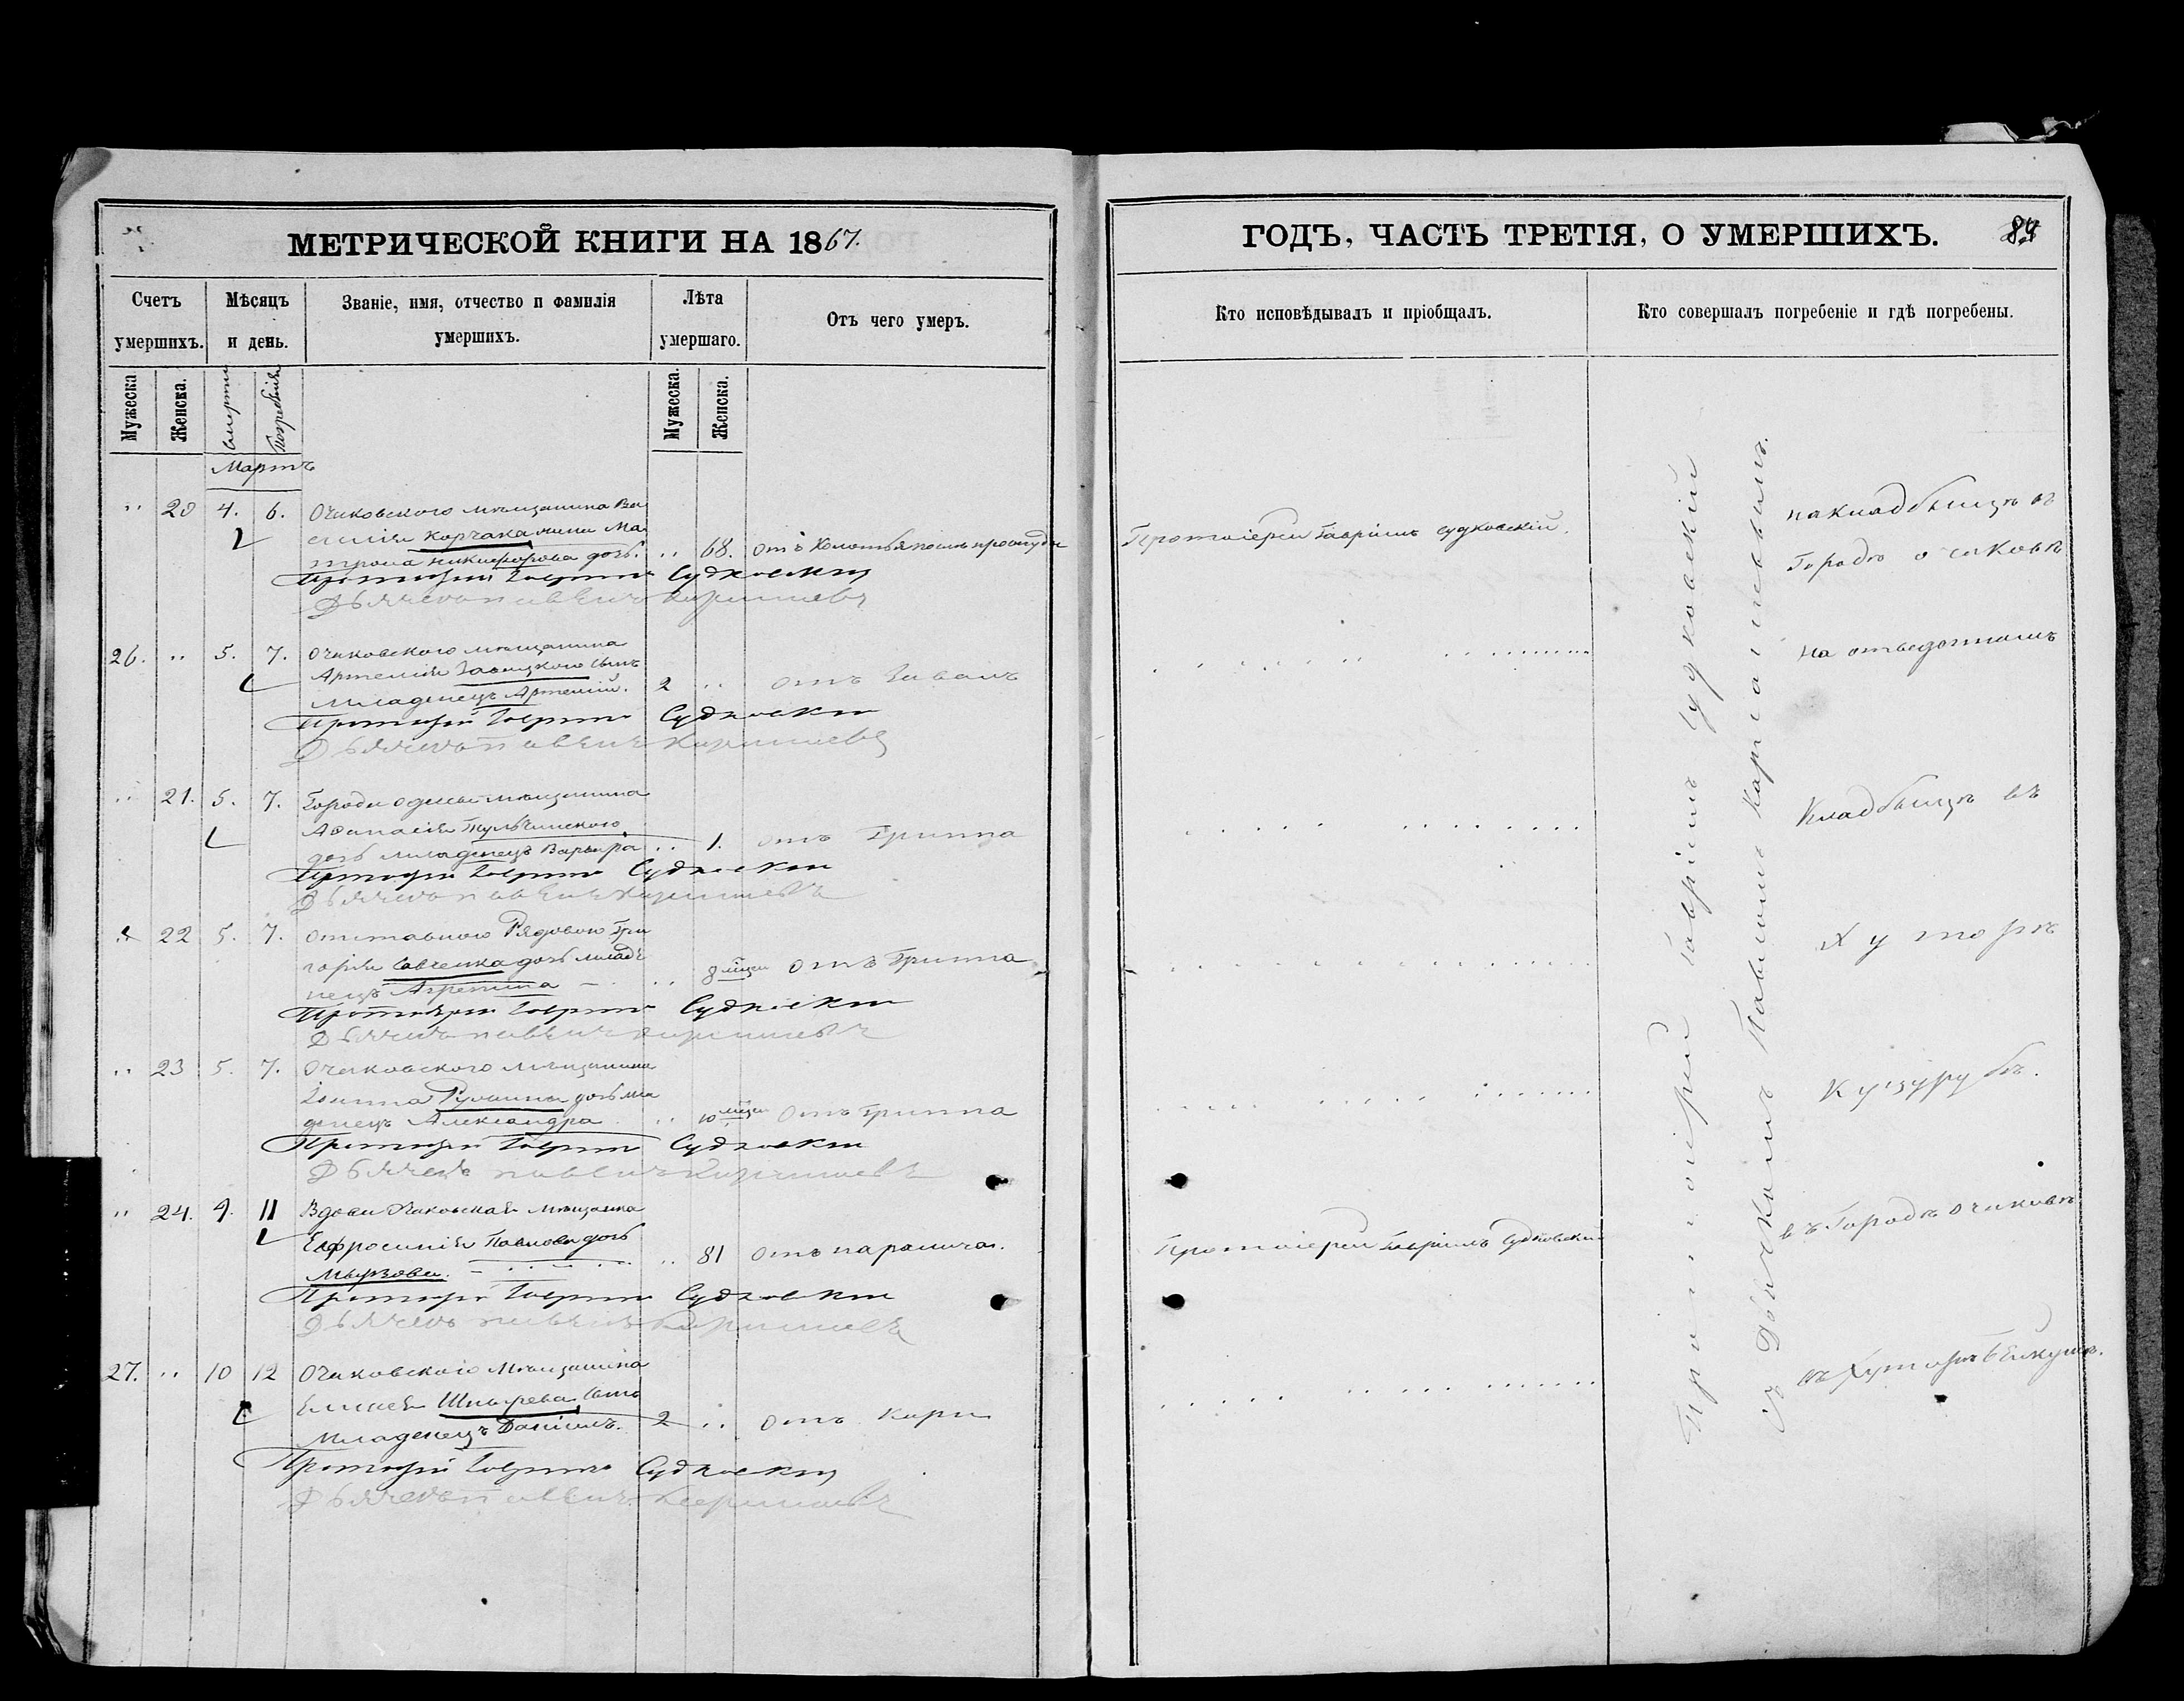 МЕТРИЧЕСКОЙ КНИГИ НА 1867.
Счетъ умершихъ.
Мѣсяцъ и день.
Званіе, имя, отчество и фамилія умершихъ.
Лѣта умершаго.
Отъ чего умеръ.
Мужеска
Женска.
смерти
Погребенія
Мужеска.
Женска.
Мартъ
" 20 4. 6. Очаковского мѣщанина Ва
силія Корчака жена Ма
трона Никифорова дочь. " 68. отъ
Протоіерей Гавріилъ Судковскій
Дьячекъ Павелъ
26. " 5. 7. Очаковского мѣщанина
Артемія сынъ
младенецъ Артемій. 2 " отъ
Протоіерей Гавріилъ Судковскій
Дьячекъ Павелъ
" 21. 5. 7. Города Одессы мѣщанина
Аѳанасія Тульчинского
дочь младенецъ Варвара " 1. отъ Гриппа
Протоіерей Гавріилъ Судковскій
Дьячекъ Павелъ
" 22 5. 7. отставного Рядового Гри
горія Савченка дочь младе
нецъ Агрепина " 8 мѣсяц отъ Гриппа
Протоіерей Гавріилъ Судковскій
Дьячекъ Павелъ
" 23 5. 7. Очаковского мѣщанина
Іоанна дочь мла
денецъ Александра " 10 мѣсяц отъ Гриппа
Протоіерей Гавріилъ Судковскій
Дьячекъ Павелъ
" 24. 9. 11 Вдова Очаковская мѣщанка
Евфросинія Павлова дочь
" 81 отъ паралича.
Протоіерей Гавріилъ Судковскій
Дьячекъ Павелъ
27. " 10 12 Очаковского мѣщанина
Елисея Шпырева сынъ
младенецъ Даніилъ. 2 " отъ Кори
Протоіерей Гавріилъ Судковскій
Дьячекъ Павелъ
ГОДЪ, ЧАСТЬ ТРЕТІЯ, О УМЕРШИХЪ.
Кто исповѣдывалъ и пріобщалъ.
Кто совершалъ погребеніе и гдѣ погребены.
Протоіерей Гавріилъ Судковскій.
Протоіерей Гавріилъ Судковскій
Протоіерей Гавріилъ Судковскій
съ Дьячкомъ Павломъ
на кладбищѣ въ
Городѣ Очаковѣ
на отведенномъ
Кладбищѣ въ
Хуторѣ
Куцурубѣ.
въ Городѣ Очаковѣ
въ Хуторѣ Бейкушъ.